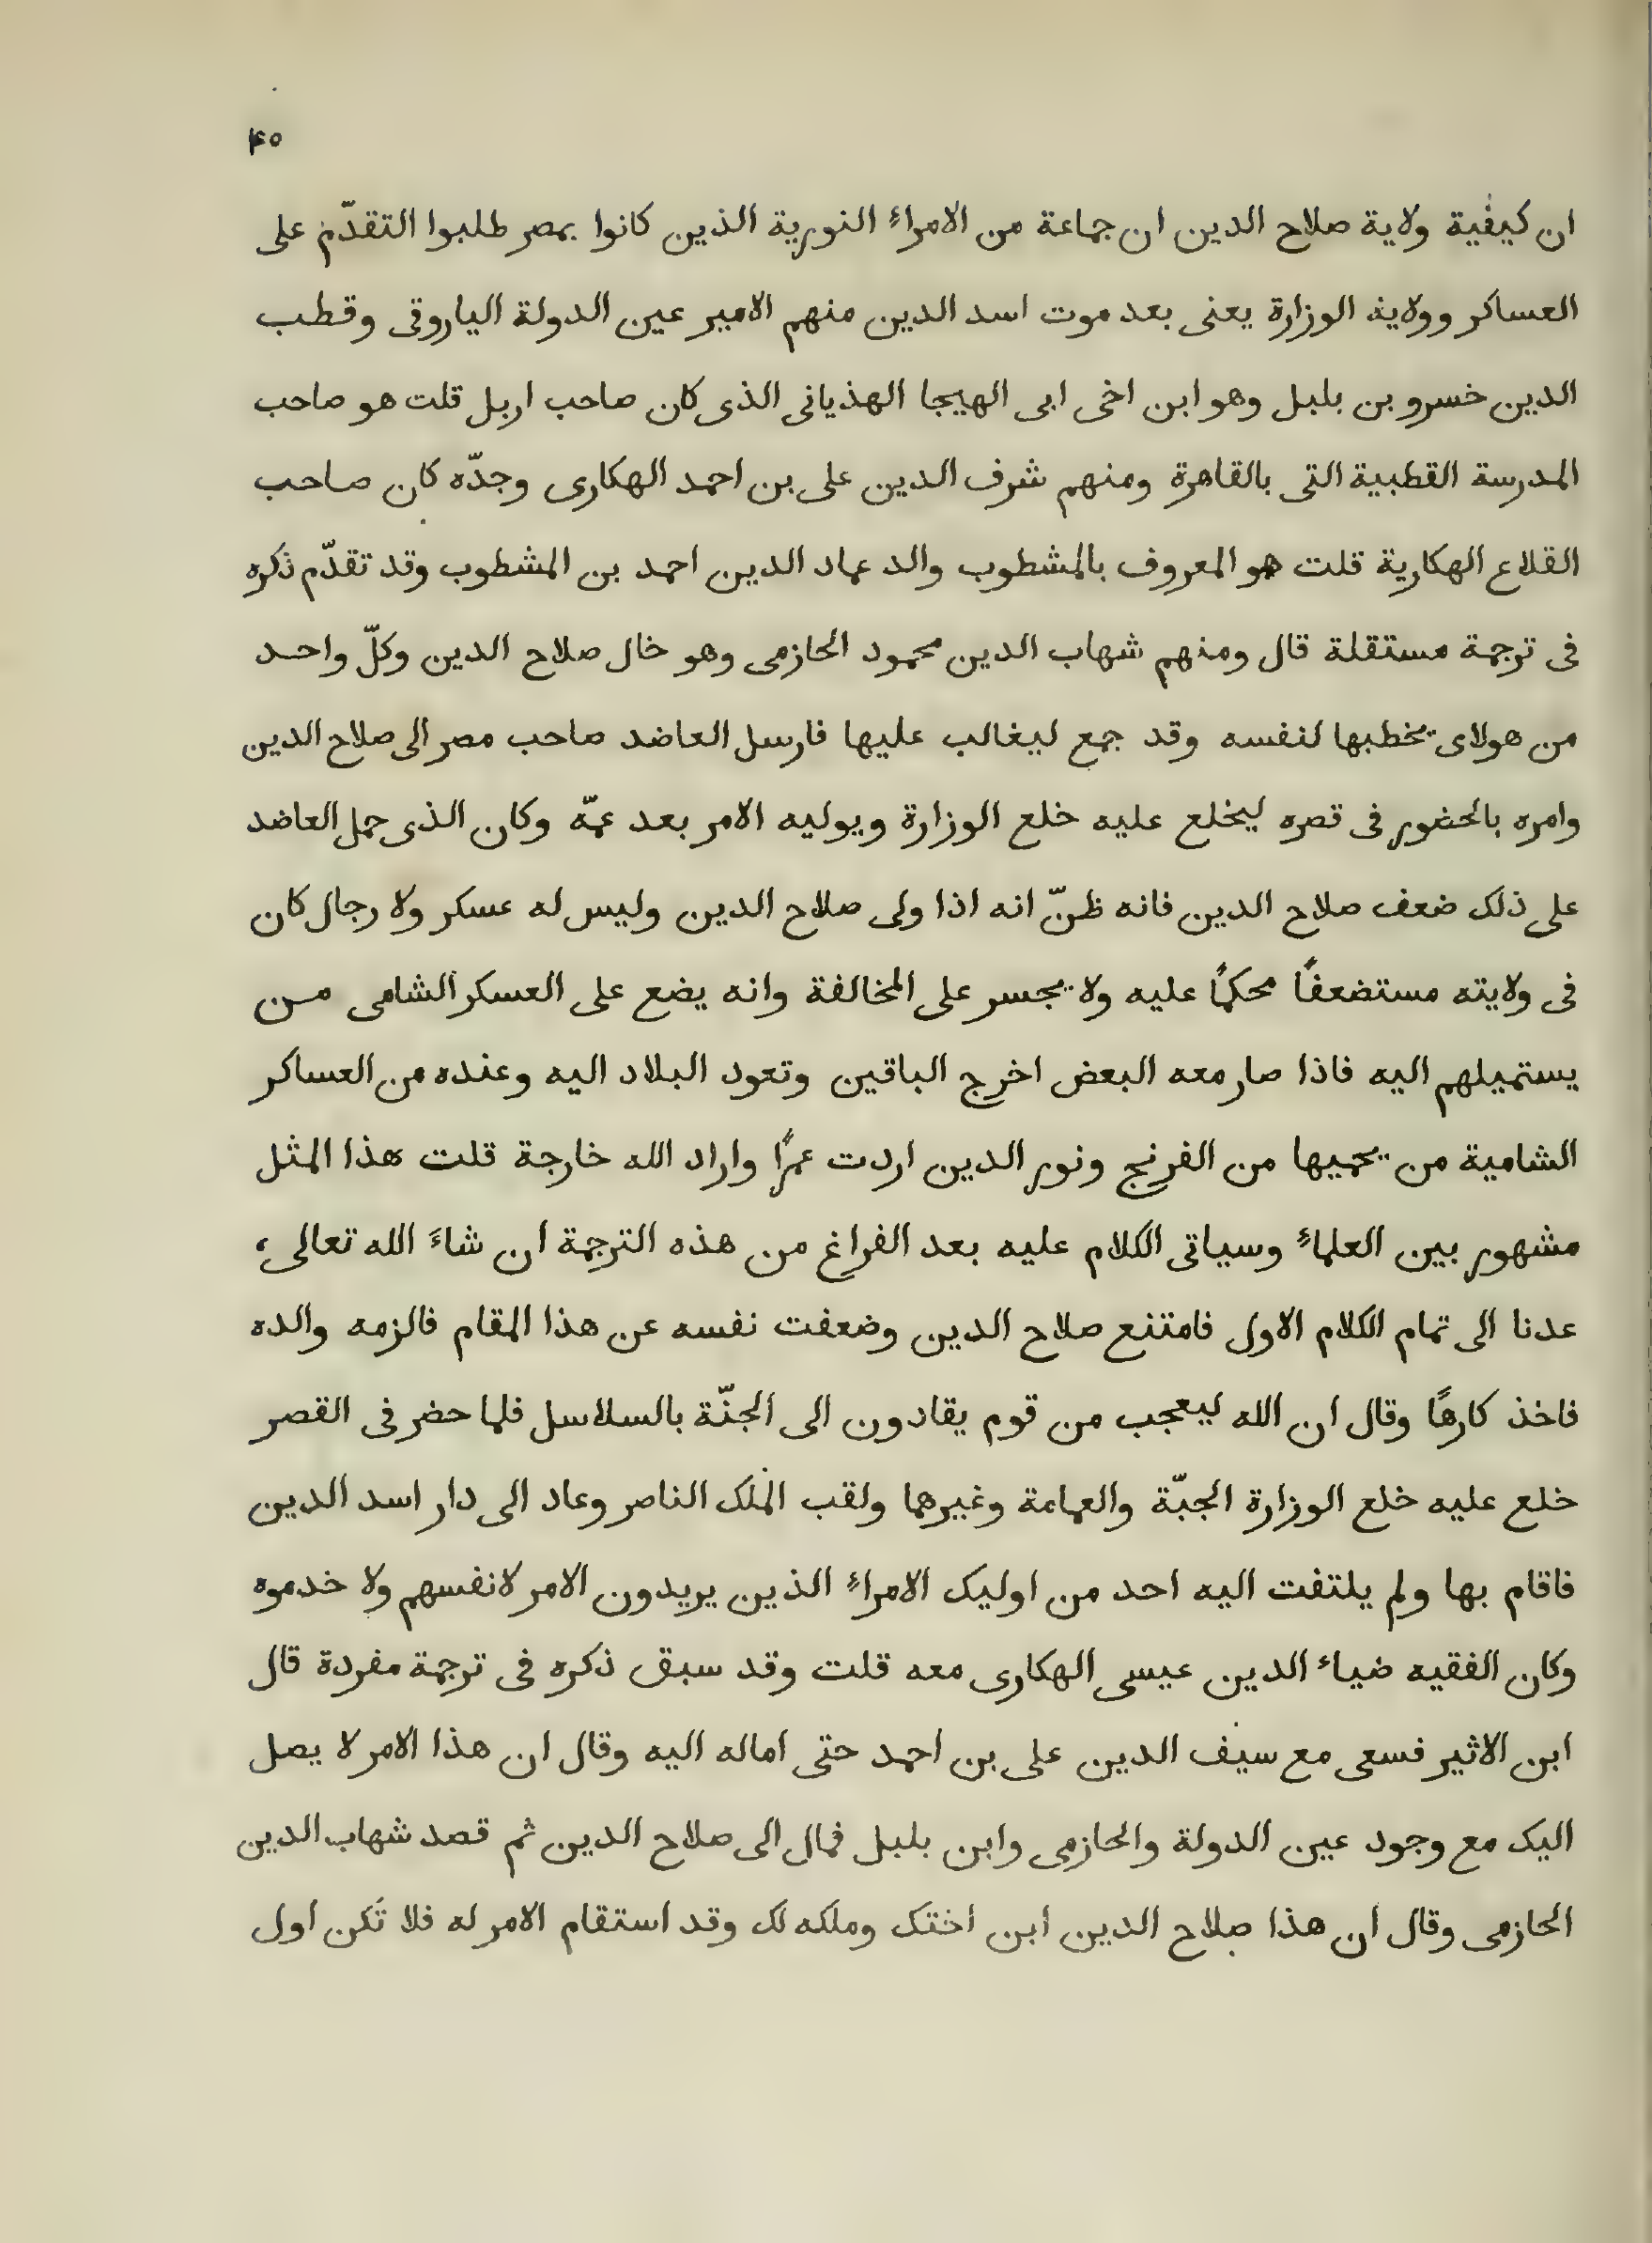 ان كيفية ولاية صلاح الدين ان جماعة من الامراءِ النورية الذين كانوا بمصر طلبوا التقدّم على
العساكر وولاية الوزارة يعنى بعد موت اسد الدين منهم الامير عين الدولة الياروقى وقطب
الدين خسرو بن بلبل وهو ابن اخى ابى الهيجا الهذيانى الذى كان صاحب اربل قلت هو صاحب
المدرسة القطبية التى بالقاهرة ومنهم شرف الدين على بن احمد الهكارى وجدّه كان صاحب
القلاع الهكارية قلت هو المعروف بالمشطوب والد عماد الدين احمد بن المشطوب وقد تقدّم ذكره
فى ترجمة مستقلة قال ومنهم شهاب الدين محمود الحازمى وهو خال صلاح الدين وكلّ واحد
من هولاى يخطبها لنفسه وقد جمع ليغالب عليها فارسل العاضد صاحب مصر الى صلاح الدين
وامره بالحضور فى قصره ليخلع عليه خلع الوزارة ويوليه الامر بعد عمّه وكان الذى حمل العاضد
على ذلك ضعف صلاح الدين فانه ظنّ انه اذا ولى صلاح الدين وليس له عسكر ولا رجال كان
فى ولايته مستضعفًا محكمًا عليه ولا يجسر على المخالفة وانه يضع على العسكر الشامى من
يستميلهم اليه فاذا صار معه البعض اخرج الباقين وتعود البلاد اليه وعنده من العساكر
الشامية من يحميها من الفرنج ونور الدين اردت عمرًا واراد الله خارجة قلت هذا المثل
مشهور بين العلماءِ وسياتى الكلام عليه بعد الفراغ من هذه الترجمة ان شاءَ الله تعالى،
عدنا الى تمام الكلام الاول فامتنع صلاح الدين وضعفت نفسه عن هذا المقام فالزمه والده
فاخذ كارهًا وقال ان الله ليعجب من قوم يقادون الى الجنّة بالسلاسل فلما حضر فى القصر
خلع عليه خلع الوزارة الجبّة والعمامة وغيرها ولقب الملك الناصر وعاد الى دار اسد الدين
فاقام بها ولم يلتفت اليه احد من اوليك الامراءِ الذين يريدون الامر لانفسهم ولا خدموه
وكان الفقيه ضياء الدين عيسى الهكارى معه قلت وقد سبق ذكره فى ترجمة مفردة قال
ابن الاثير فسعى مع سيف الدين على بن احمد حتى اماله اليه وقال ان هذا الامر لا يصل
اليك مع وجود عين الدولة والحازمى وابن بلبل فمال الى صلاح الدين ثم قصد شهاب الدين
الحازمى وقال ان هذا صلاح الدين ابن اختك وملكه لك وقد استقام الامر له فلا تكن اول